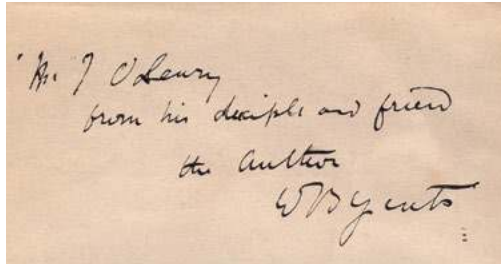 Mr J O'Leary
from his deciple and friend
the author
W B Yeats